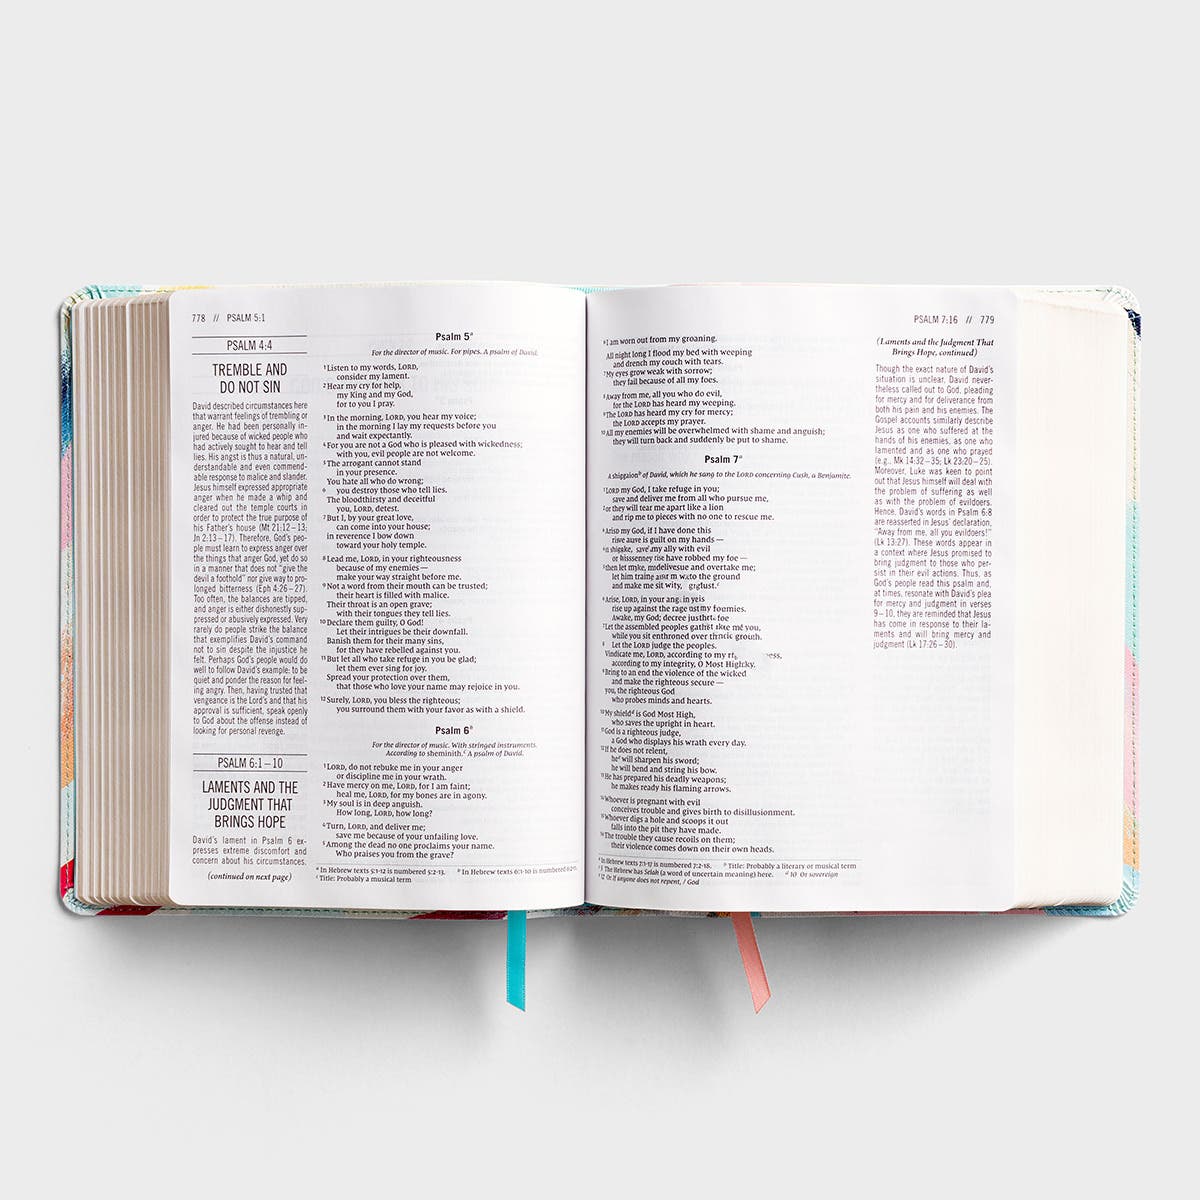 778 // PSALM 5:1
PSALM 4:4
TREMBLE AND
DO NOT SIN
David described circumstances here
that warrant feelings of trembling or
anger. He had been personally in-
jured because of wicked people who
had actively sought to hear and tell
lies. His angst is thus a natural, un-
derstandable and even commend-
able response to malice and slander.
Jesus himself expressed appropriate
anger when he made a whip and
cleared out the temple courts in
order to protect the true purpose of
his Father's house (Mt 21:12–13;
Jn 2:13–17). Therefore, God's peo-
ple must learn to express anger over
the things that anger God, yet do so
in a manner that does not "give the
devil a foothold" nor give way to pro-
longed bitterness (Eph 4:26–27).
Too often, the balances are tipped,
and anger is either dishonestly sup-
pressed or abusively expressed. Very
rarely do people strike the balance
that exemplifies David's command
not to sin despite the injustice he
felt. Perhaps God's people would do
well to follow David's example: to be
quiet and ponder the reason for feel-
ing angry. Then, having trusted that
vengeance is the Lord's and that his
approval is sufficient, speak openly
to God about the offense instead of
looking for personal revenge.
PSALM 6:1–10
LAMENTS AND THE
JUDGMENT THAT
BRINGS HOPE
David's lament in Psalm 6 ex-
presses extreme discomfort and
concern about his circumstances.
(continued on next page)
Psalm 5a
For the director of music. For pipes. A psalm of David.
1 Listen to my words, LORD,
consider my lament.
2 Hear my cry for help,
my King and my God,
for to you I pray.
3 In the morning, LORD, you hear my voice;
in the morning I lay my requests before you
and wait expectantly.
4 For you are not a God who is pleased with wickedness;
with you, evil people are not welcome.
5 The arrogant cannot stand
in your presence.
You hate all who do wrong;
6 you destroy those who tell lies.
The bloodthirsty and deceitful
you, LORD, detest.
7 But I, by your great love,
can come into your house;
in reverence I bow down
toward your holy temple.
8 Lead me, LORD, in your righteousness
because of my enemies —
make your way straight before me.
9 Not a word from their mouth can be trusted;
their heart is filled with malice.
Their throat is an open grave;
with their tongues they tell lies.
10 Declare them guilty, O God!
Let their intrigues be their downfall.
Banish them for their many sins,
for they have rebelled against you.
11 But let all who take refuge in you be glad;
let them ever sing for joy.
Spread your protection over them,
that those who love your name may rejoice in you.
12 Surely, LORD, you bless the righteous;
you surround them with your favor as with a shield.
Psalm 6b
For the director of music. With stringed instruments.
According to sheminith.c A psalm of David.
1 LORD, do not rebuke me in your anger
or discipline me in your wrath.
2 Have mercy on me, LORD, for I am faint;
heal me, LORD, for my bones are in agony.
3 My soul is in deep anguish.
How long, LORD, how long?
4 Turn, LORD, and deliver me;
save me because of your unfailing love.
5 Among the dead no one proclaims your name.
Who praises you from the grave?
a In Hebrew texts 5:1-12 is numbered 5:2-13. b In Hebrew texts 6:1-10 is numbered
c Title: Probably a musical term
PSALM 7:16 // 779
6 I am worn out from my groaning.
All night long I flood my bed with weeping
and drench my couch with tears.
7 My eyes grow weak with sorrow;
they fail because of all my foes.
8 Away from me, all you who do evil,
for the LORD has heard my weeping.
9 The LORD has heard my cry for mercy;
the LORD accepts my prayer.
10 All my enemies will be overwhelmed with shame and anguish;
they will turn back and suddenly be put to shame.
Psalm 7a
A shiggaionb of David, which he sang to the LORD concerning Cush, a Benjamite.
1 LORD my God, I take refuge in you;
save and deliver me from all who pursue me,
2 or they will tear me apart like a lion
and rip me to pieces with no one to rescue me.
my God, if I have done this
is guilt on my hands —
my ally with evil
have robbed my foe —
5 then let and overtake me;
let him the ground
and make me
6 Arise, LORD, in your
rise up against the rage
Awake, my God; decree
7 Let the assembled peoples me you,
while you sit enthroned over
8 Let the LORD judge the peoples.
Vindicate me, LORD, according to my
according to my integrity, O Most
9 Bring to an end the violence of the wicked
and make the righteous secure —
you, the righteous God
who probes minds and hearts.
10 My shieldd is God Most High,
who saves the upright in heart.
11 God is a righteous judge,
a God who displays his wrath every day.
12 If he does not relent,
hee will sharpen his sword;
he will bend and string his bow.
13 He has prepared his deadly weapons;
he makes ready his flaming arrows.
14 Whoever is pregnant with evil
conceives trouble and gives birth to disillusionment.
15 Whoever digs a hole and scoops it out
falls into the pit they have made.
16 The trouble they cause recoils on them;
their violence comes down on their own heads.
a In Hebrew texts 7:1-17 is numbered 7:2-18. b Title: Probably a literary or musical term
The Hebrew has Selah (a word of uncertain meaning) here. d 10 Or sovereign
12 Or If anyone does not repent, / God
(Laments and the Judgment That
Brings Hope, continued)
Though the exact nature of David's
situation is unclear, David never-
theless called out to God, pleading
for mercy and for deliverance from
both his pain and his enemies. The
Gospel accounts similarly describe
Jesus as one who suffered at the
hands of his enemies, as one who
lamented and as one who prayed
(e.g., Mk 14:32–35; Lk 23:20–25).
Moreover, Luke was keen to point
out that Jesus himself will deal with
the problem of suffering as well
as with the problem of evildoers.
Hence, David's words in Psalm 6:8
are reasserted in Jesus' declaration,
"Away from me, all you evildoers!"
(Lk 13:27). These words appear in
a context where Jesus promised to
bring judgment to those who per-
sist in their evil actions. Thus, as
God's people read this psalm and,
at times, resonate with David's plea
for mercy and judgment in verses
9–10, they are reminded that Jesus
has come in response to their la-
ments and will bring mercy and
judgment (Lk 17:26–30).